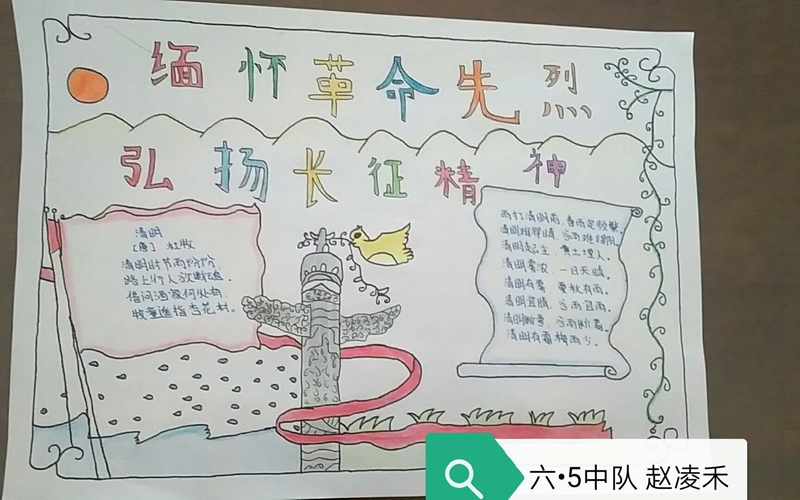 缅怀革命先烈
弘扬长征精神
清明
[唐] 杜牧
清明时节雨纷纷
路上行人欲断魂.
借问酒家何处有,
牧童遥指杏花村.
雨打清明前,春雨定频繁.
清明难得晴,谷雨难得阴.
清明起尘,黄土埋人.
清明雾浓,一日天晴.
清明有雾,夏秋有雨.
清明宜晴,谷雨宜雨.
清明断雪,谷雨断霜.
清明有霜梅雨少.
六•5中队 赵凌禾